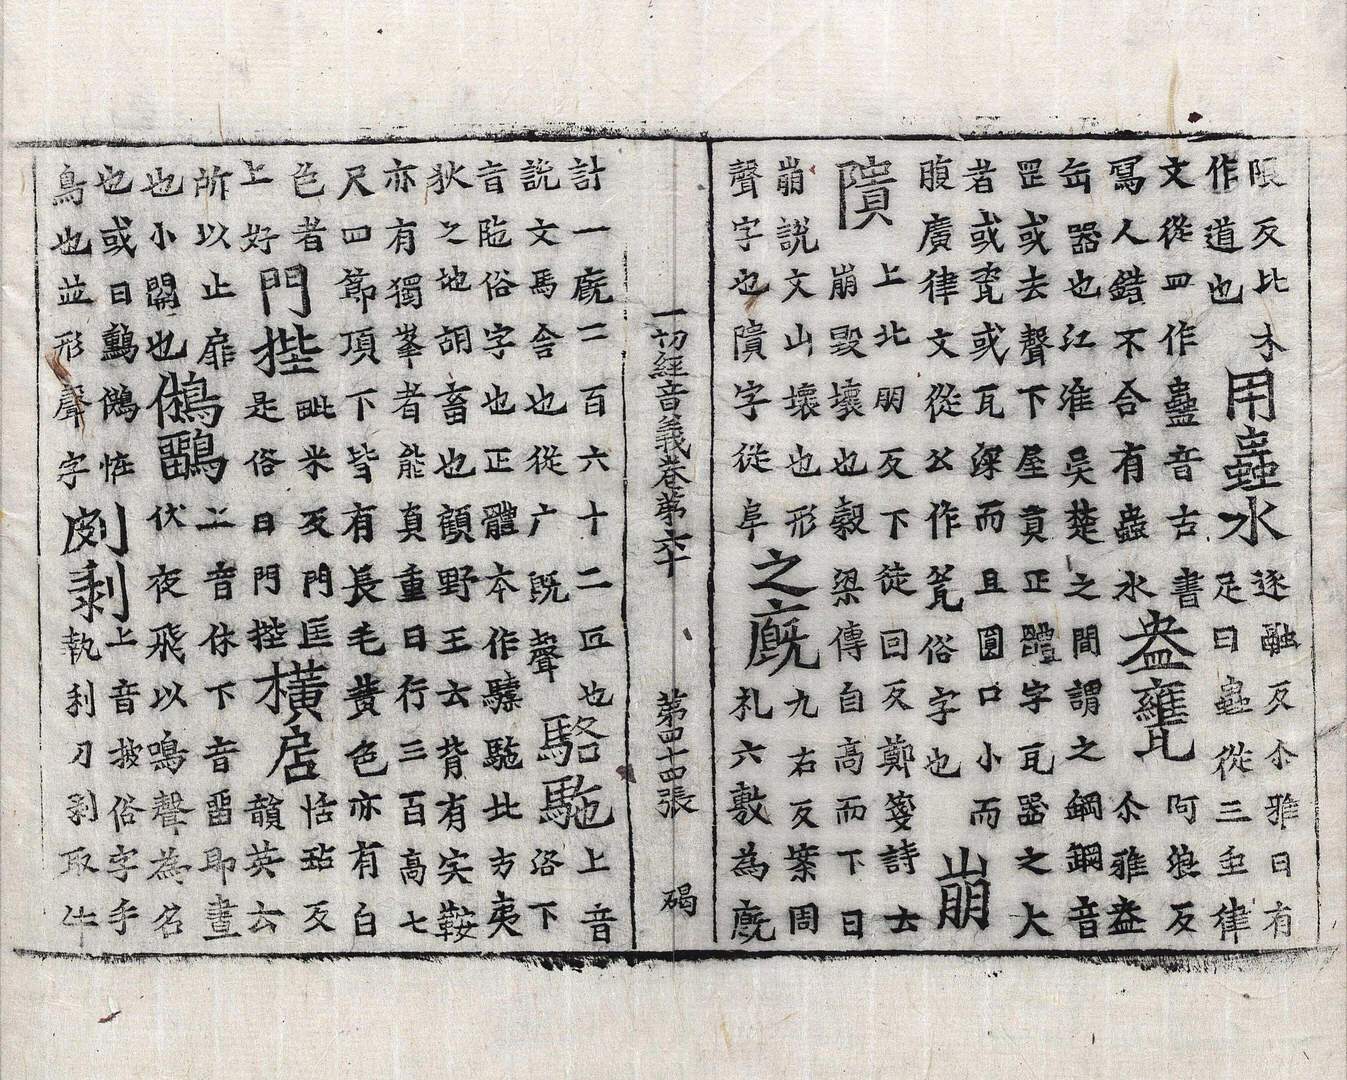 限反比木
作道也
用蟲水
逐融反尒雅曰有
足曰蟲從三虫律
文從四作蠱音古書
寫人錯不合有蟲水
盎甕
阿浪反
尒雅盎
缶器也江淮吳楚之間謂之鋼鋼音
罡或去聲下屋貢正體字瓦器之大
者或瓷或瓦深而且圓口小而
腹廣律文從公作瓮俗字也
崩
隤
上北朋反下徒回反鄭箋詩云
崩毀壞也穀梁傳自高而下曰
崩說文山壞也形
聲字也隤字從阜
之廐
九右反案周
札六敷為廐
一切經音義卷第六十 第四十四張 碣
計一廐二百六十二匹也
說文馬舍也從广旣聲
駱駞
上音
洛下
音陁俗字也正體本作驝馳北方夷
狄之地胡畜也顧野王云背有宍鞍
亦有獨峯者能負重日行三百高七
尺四節項下皆有長毛黃色亦有白
色者
上好
門㧜
毗米反門匡
是俗曰門㧜
橫扂
恬玷反
韻英云
所以止扉
也小關也
鵂鶹
二音休下音留即晝
伏夜飛以鳴聲為名
也或曰鵂恠
鳥也並形聲字
剝
上音披俗字手
執利刀剝取牛